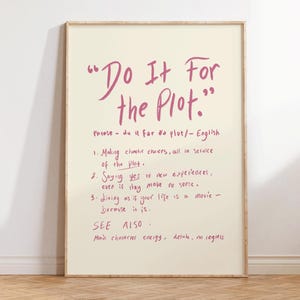 "Do It For
the Plot."
phrase - do it for do plot/- English
1. Making chaotic choices, all in service
of the plot.
2. Saying yes to new experiences,
even if they make no sense.
3. Living as if your life is a movie -
because it is.
SEE ALSO:
Main character energy, delulu, no regrets